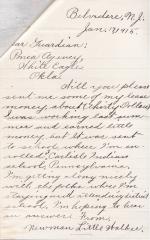 Belvidere, N.J.
Jan. 7, 1915.
Dear Guardian:
Ponca Agency,
White Eagle
Okla.
Will you please
send me some of my lease
money about thirty Dollars
I was working last sum
mer and earned little
money, but it was sent
to school where I'm en
rolled; Carlisle Indian
school, Pennsylvania,
I'm getting along nicely
with the folks where I'm
staying and attending
school. I'm hoping to hear
an answer. From,
Newman Little Walker.